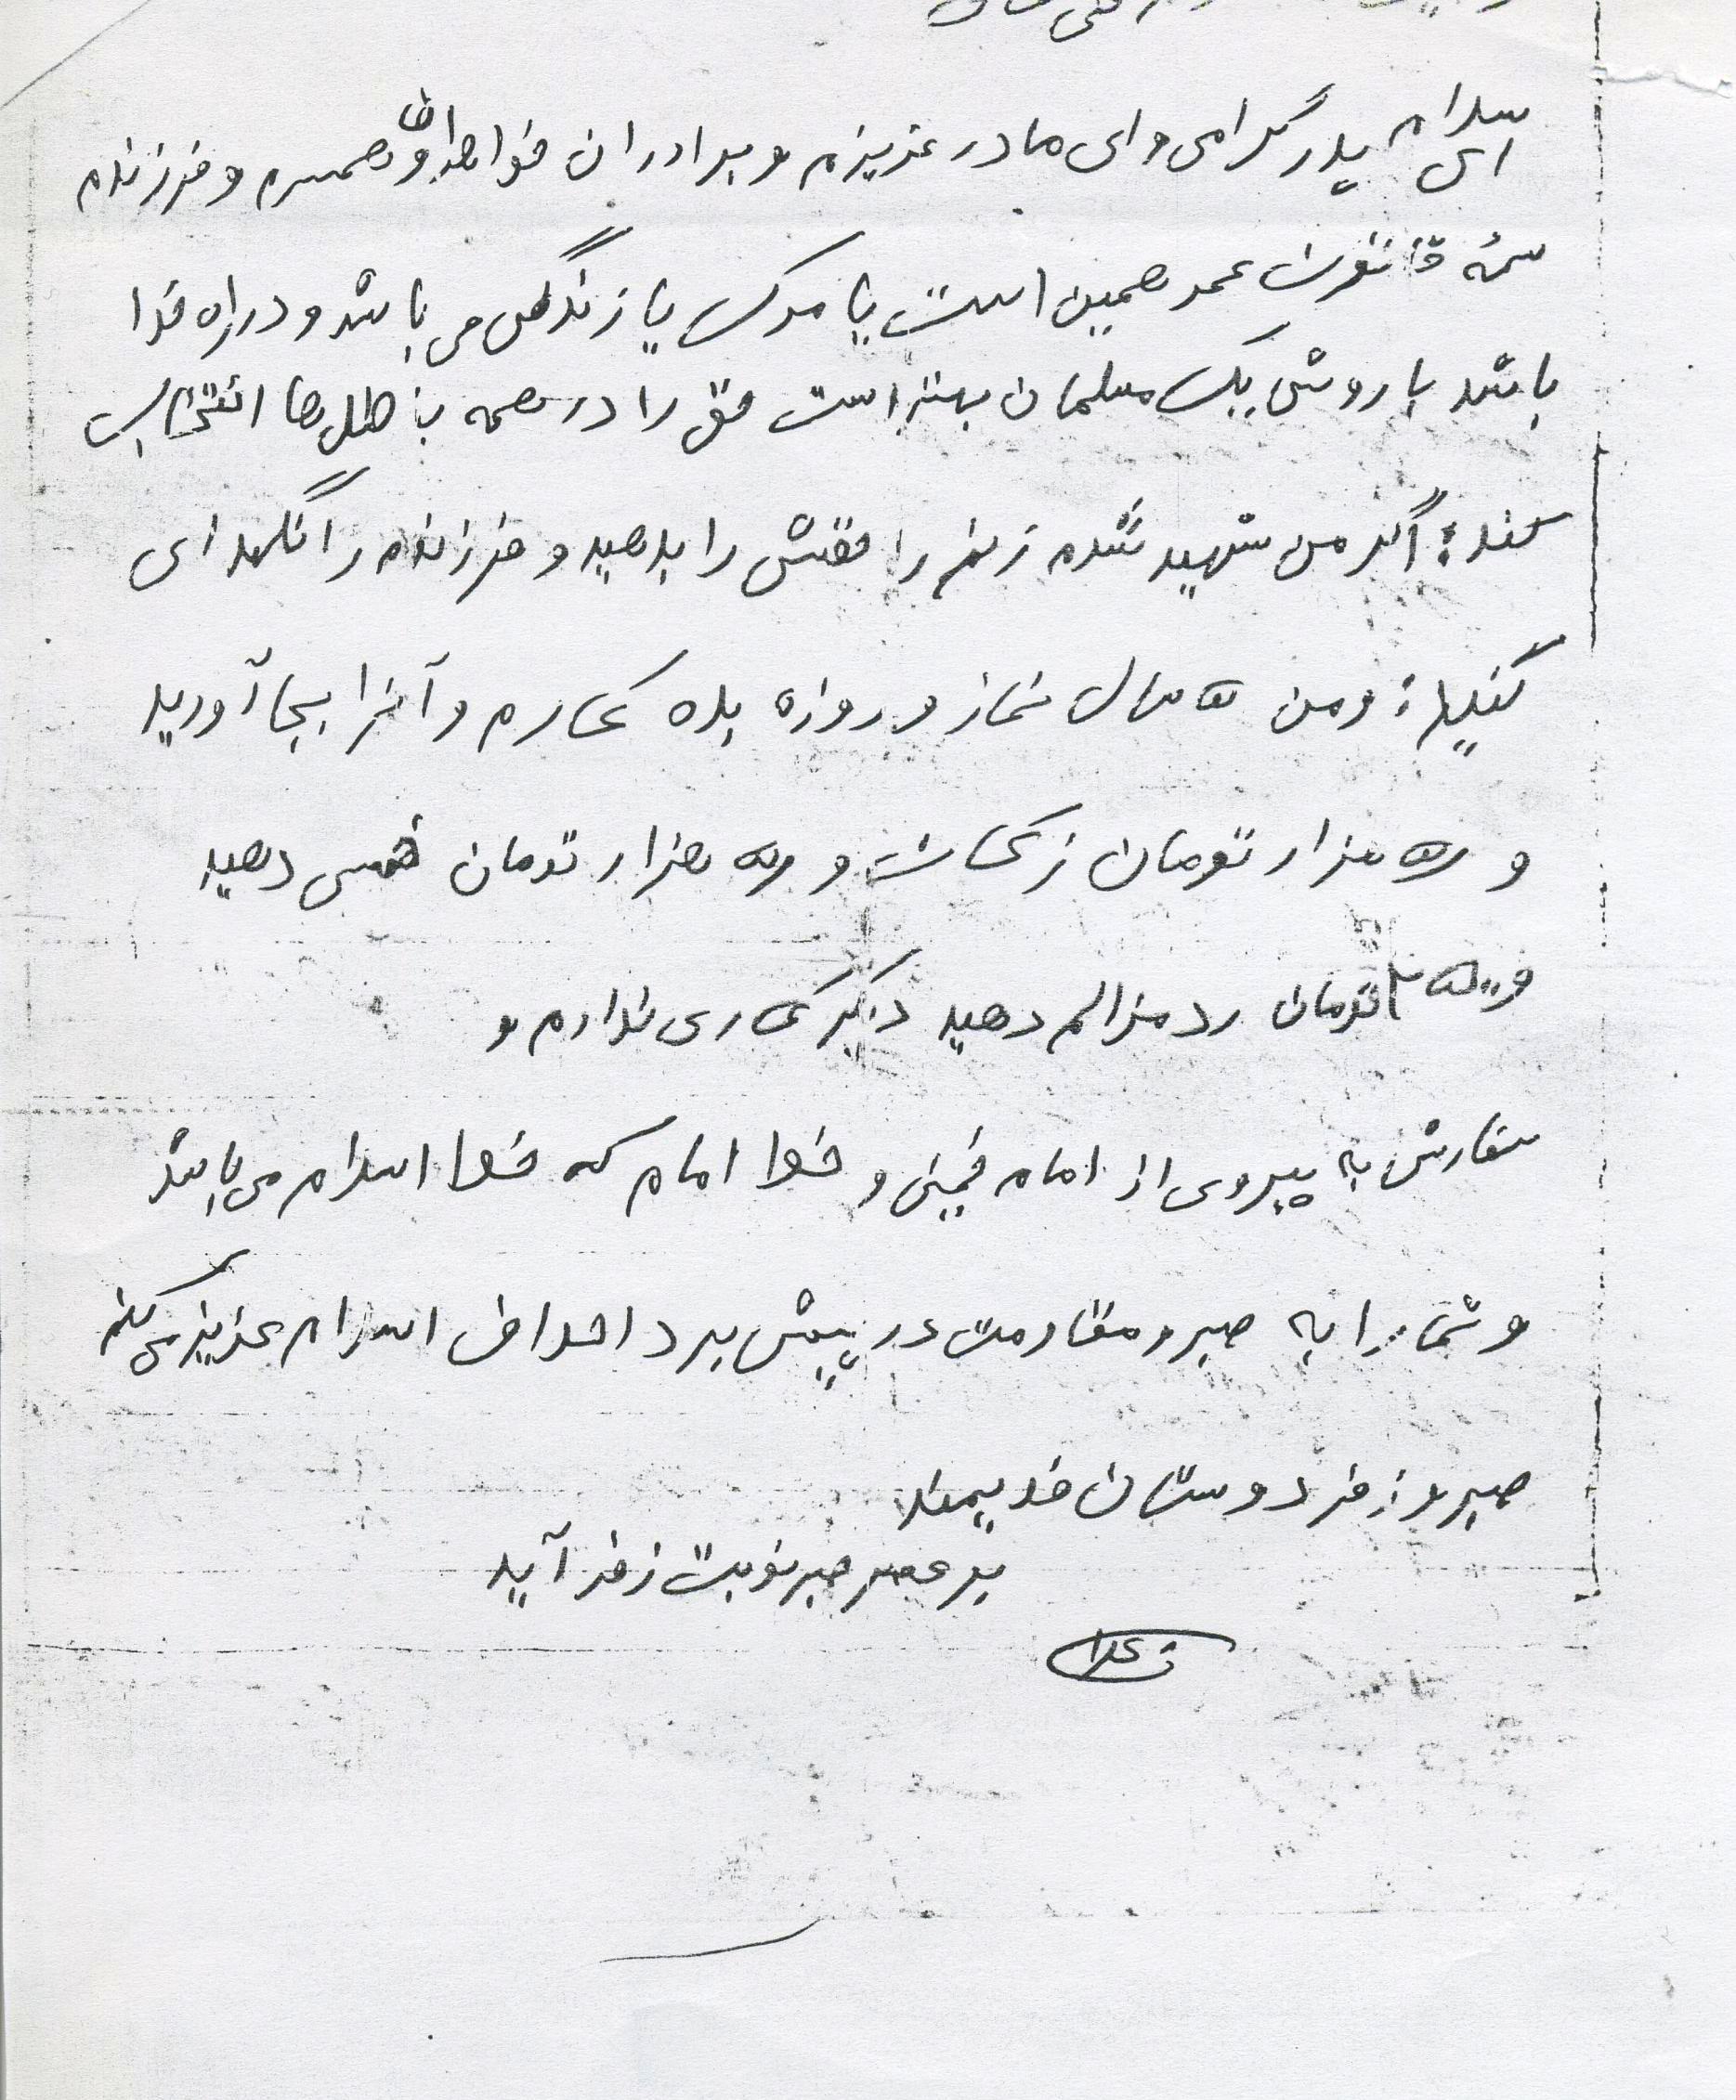 سلام
ای پدر گرامی و ای مادر عزیزم و برادران خواهران و همسرم و فرزندم
که قانون عمر همین است یا مرگ یا زندگی می باشد و در راه خدا
باشد با روش یک مسلمان بهتر است حق را در همه باطل ها انتخاب
کند؛ اگر من شهید شدم زنم را حقش را بدهید و فرزندم را نگهدای
کنید؛ ومن ۵ سال نماز و روزه بده کارم و آنرا بجا آورید
و ۵ هزار تومان زکات و ۵ هزار تومان خمس دهید
و تومان رد مزالم دهید دیگر کاری ندارم و
سفارش به پیروی از امام خمینی و خط امام که خط اسلام می باشد
و شما را به صبر و مقاومت در پیش برد اهداف اسلام عزیز می کنم
صبر و زفر دوستان قدیمند
بر عصر صبر نوبت زفر آید